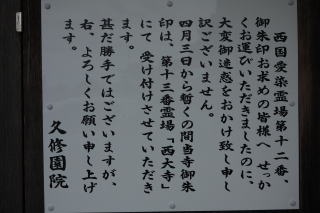 西国愛染霊場第十二番、
御朱印お求めの皆様へ せっか
くお運びいただきましたのに、
大変御迷惑をおかけ致し申し
訳ございません。
四月三日から暫くの間当寺御朱
印は、第十三番霊場「西大寺」
にて 受け付けさせていただき
ます。
甚だ勝手ではございますが、
右、よろしくお願い申し上げ
ます。
久修園院